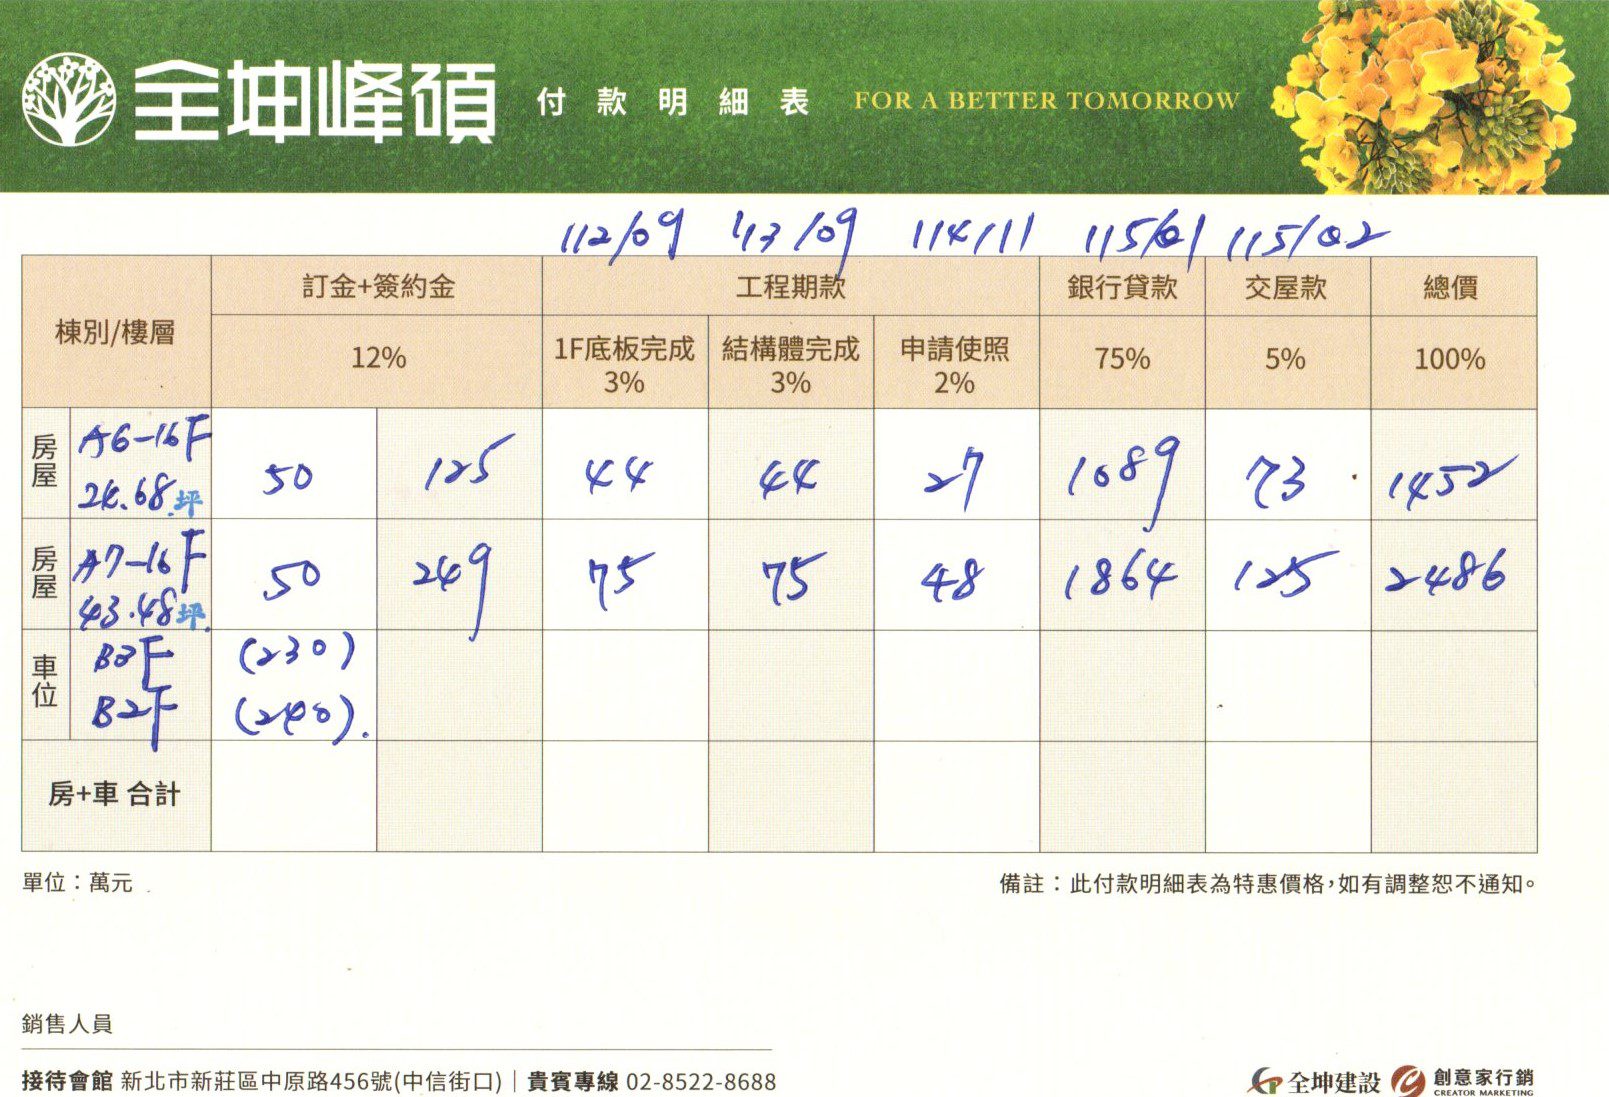 全坤峰碩 付款明細表 FOR A BETTER TOMORROW
112/09 113/09 114/11 115/01 115/02
棟別/樓層 訂金+簽約金 工程期款 銀行貸款 交屋款 總價
12% 1F底板完成 3% 結構體完成 3% 申請使照 2% 75% 5% 100%
房屋 A6-16F 24.68坪 50 125 44 44 27 1089 73 1452
房屋 A7-16F 43.48坪 50 249 75 75 48 1864 125 2486
車位 B3F (230)
B2F (240).
房+車 合計
單位：萬元
備註：此付款明細表為特惠價格,如有調整恕不通知。
銷售人員
接待會館 新北市新莊區中原路456號(中信街口)｜貴賓專線 02-8522-8688
全坤建設 創意家行銷
CREATOR MARKETING